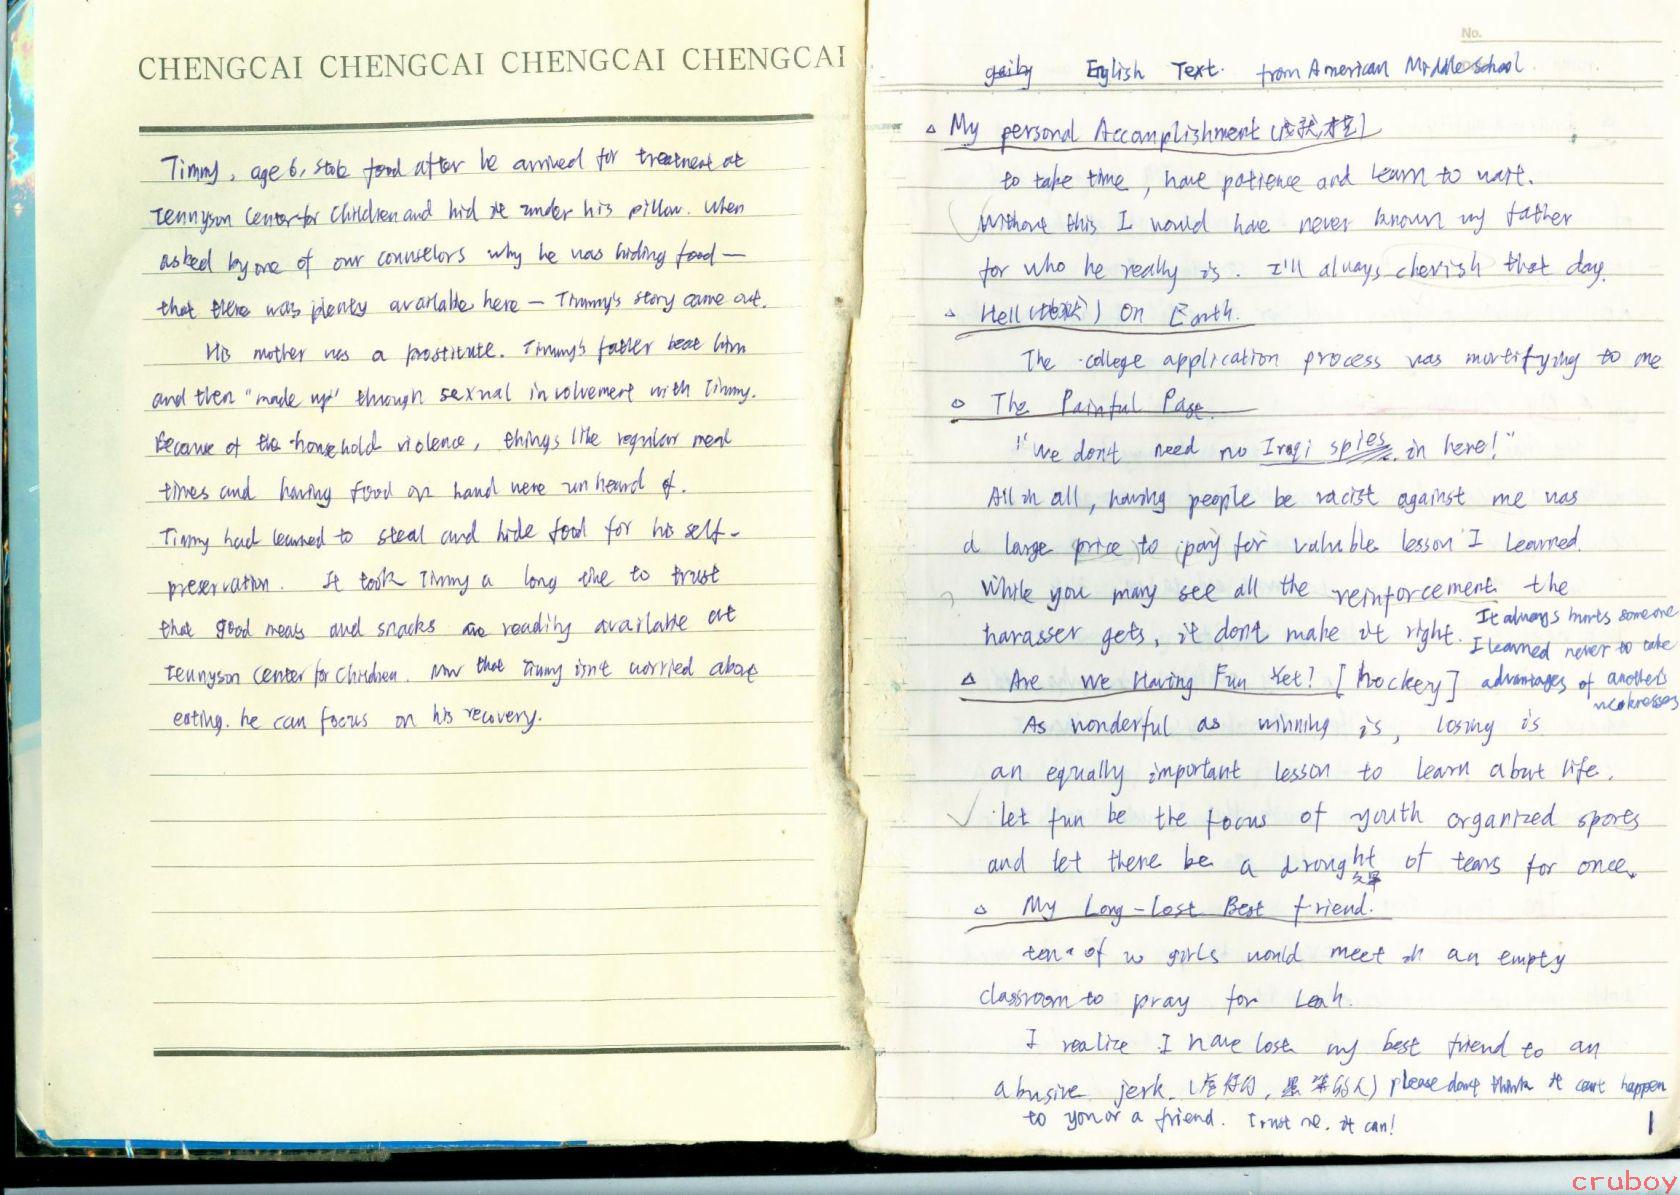 CHENGCAI CHENGCAI CHENGCAI CHENGCAI
Timmy, age 6, stole food after he arrived for treatment at
Tennyson Center for Children and hid it under his pillow. When
asked by one of our counselors why he was hiding food —
that there was plenty available here — Timmy's story came out.
His mother was a prostitute. Timmy's father beat him
and then "made up" through sexual involvement with Timmy.
Because of the household violence, things like regular meal
times and having food on hand were unheard of.
Timmy had learned to steal and hide food for his self-
preservation. It took Timmy a long time to trust
that good meals and snacks are readily available at
Tennyson Center for Children. Now that Timmy isn't worried about
eating. he can focus on his recovery.
No.
English Text. from American Middle school
△ My personal Accomplishment (成就,才华)
to take time, have patience and learn to wait.
Without this I would have never known my father
for who he really is. I'll always cherish that day.
△ Hell (地狱) On Earth.
The college application process was mortifying to me
△ The Painful Page.
"We don't need no Iraqi spies in here!"
All in all, having people be racist against me was
a large price to pay for valuable lesson I learned.
While you many see all the reinforcement the
harasser gets, it don't make it right. It always hurts someone
I learned never to take
△ Are We Having Fun Yet? [hockey] advantages of another's
weaknesses
As wonderful as winning is, losing is
an equally important lesson to learn about life.
let fun be the focus of youth organized sports
and let there be a drought of tears for once.
久旱
△ My Long-Lost Best friend.
ten of us girls would meet in an empty
classroom to pray for Leah.
I realize I have lost my best friend to an
abusive jerk. (虐待的, 愚笨的人) please don't think it can't happen
to you or a friend. Trust me. it can!
1
cruboy